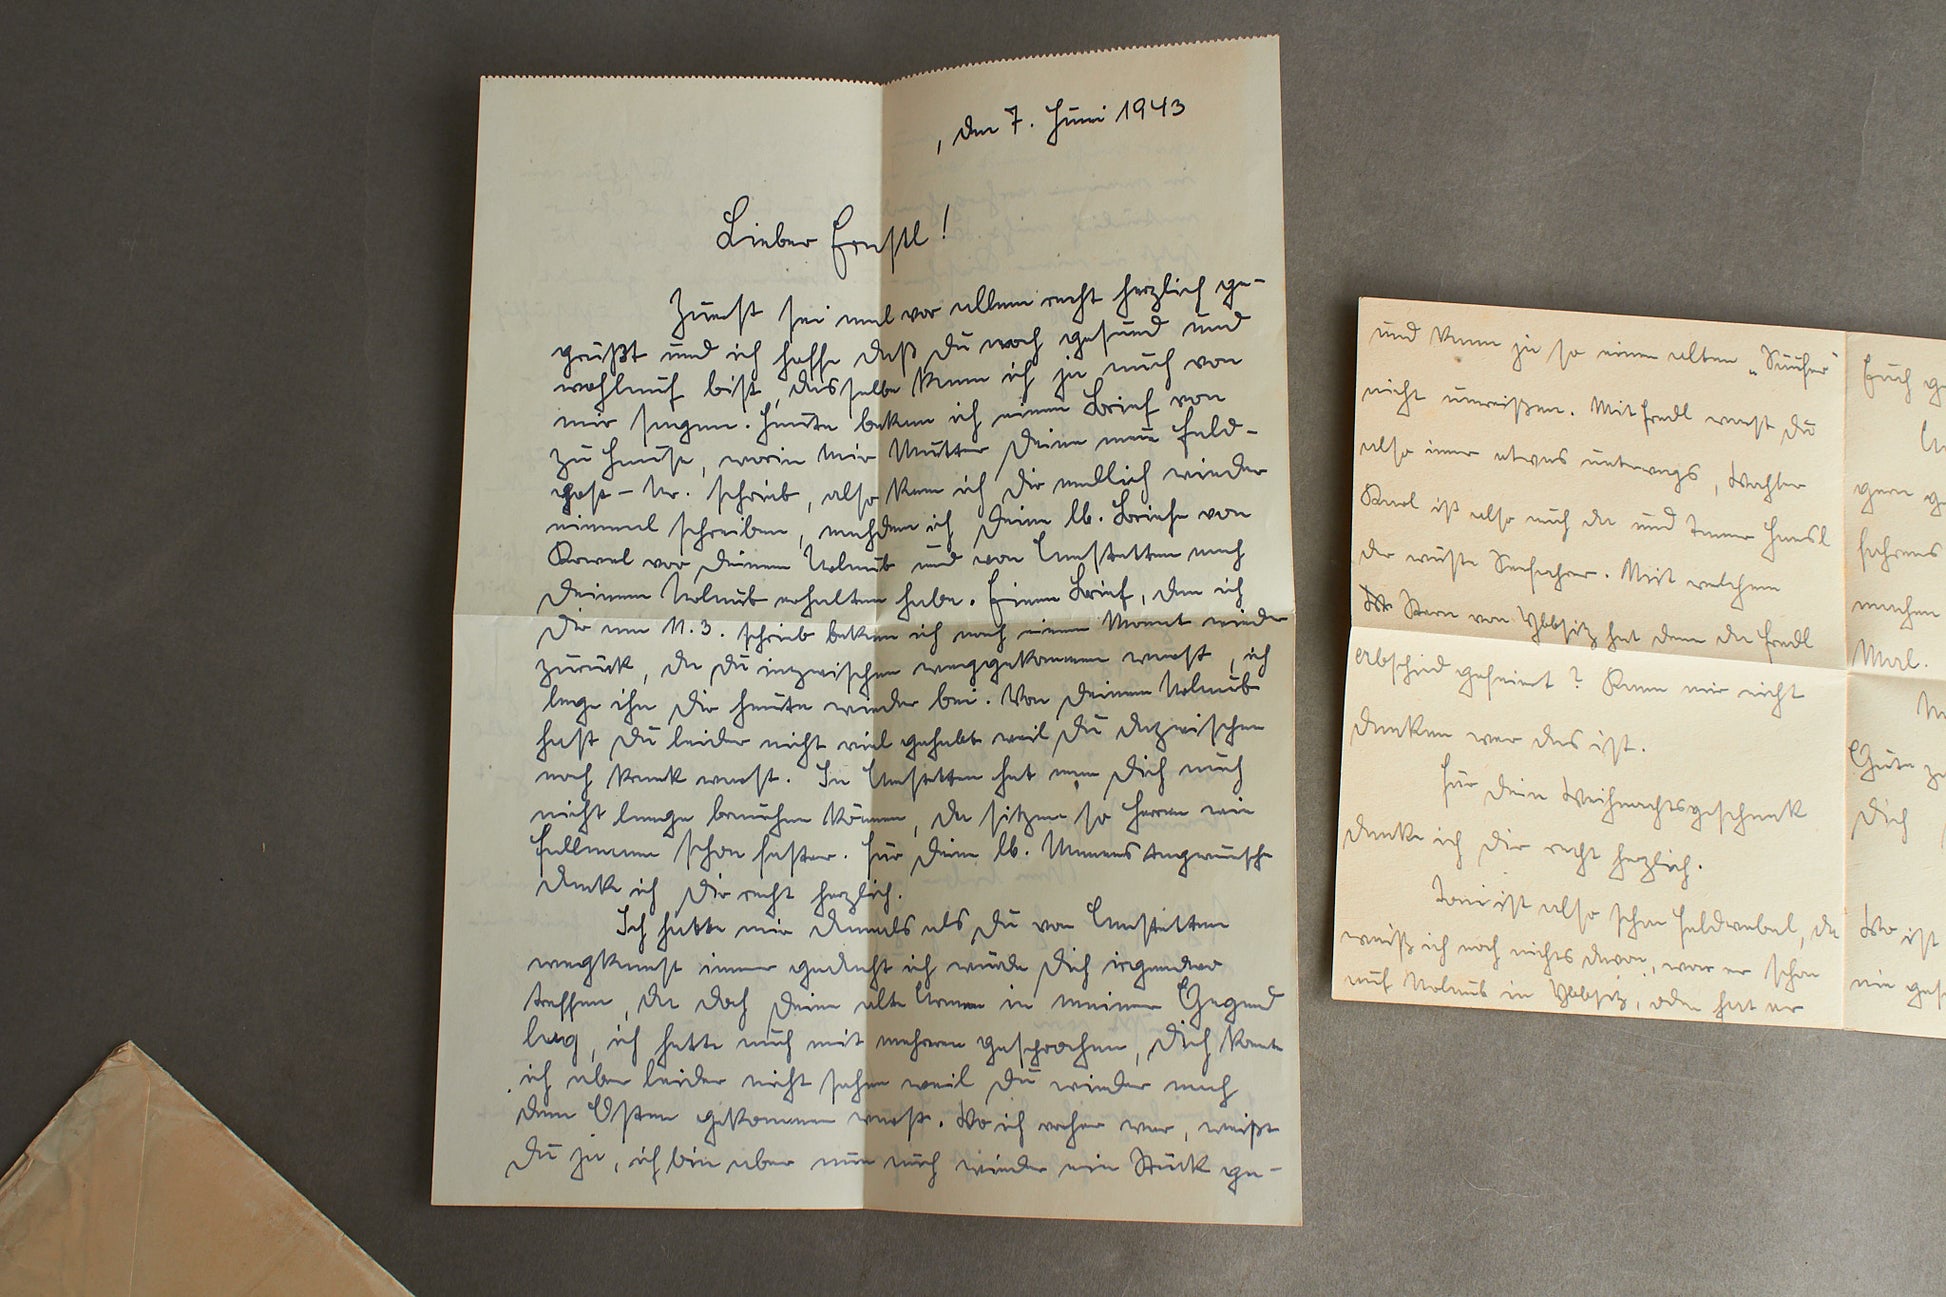 , den 7. Juni 1943
Lieber Ernstl!
Zuerst sei mal vor allem recht herzlich ge-
grüßt und ich hoffe daß Du noch gesund und
wohlauf bist, dasselbe kann ich ja auch von
mir sagen. Heute bekam ich einen Brief von
zu Hause, worin mir Mutter Deine neue Feld-
post-Nr. schrieb, also kann ich Dir endlich wieder
einmal schreiben, nachdem ich Deine lb. Briefe von
vor Deinem Urlaub und von Amstetten nach
Deinem Urlaub erhalten habe. Einen Brief, den ich
Dir am 11.3. schrieb bekam ich nach einem Monat wieder
zurück, da Du inzwischen weggekommen warst, ich
lege ihn Dir heute wieder bei. Von Deinem Urlaub
hast Du leider nicht viel gehabt weil Du dazwischen
noch krank warst. In Amstetten hat man Dich auch
nicht lange brauchen können, da sitzen so Herren wie
schon fester. Für Deine lb. Namenstagwünsche
danke ich Dir recht herzlich.
Ich hatte mir damals als Du von Amstetten
wegkamst immer gedacht ich würde Dich irgendwo
treffen, da doch Deine alte Armee in meiner Gegend
lag, ich hatte auch mit mehreren gesprochen, Dich konnte
ich aber leider nicht sehen weil Du wieder nach
dem Osten gekommen warst. Wo ich vorher war, weißt
Du ja, ich bin aber nun auch wieder ein Stück ge-
und kann ja so einen alten
nicht umreißen. Mit Fredl warst Du
also immer etwas unterwegs,
Karl ist also auch da und Hansl
der wüste Seefahrer. Mit welchem
Stern von Ybbsitz hat denn der Fredl
Abschied gefeiert? Kann mir nicht
denken wer das ist.
Für Dein Weihnachtsgeschenk
danke ich Dir recht herzlich.
Toni ist also schon Feldwebel, da
weiß ich noch nichts davon, war er schon
auf Urlaub in Ybbsitz, oder hat er
Euch
gern
machen
Mal.
Gute
Dich
Wo ist
nie